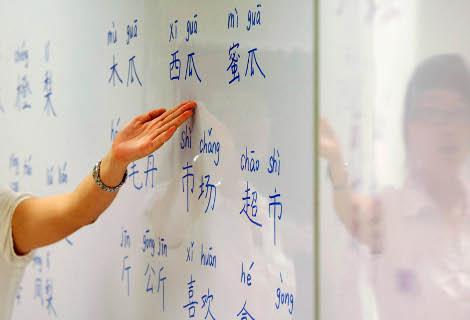 mù guā xī guā mì guā
木瓜 西瓜 蜜瓜
lí
橙 梨
shì chǎng chāo shì
毛丹 市场 超市
jīn gōng jīn xǐ huān hé gōng
斤 公斤 喜欢
梨